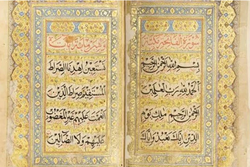 سورة الفاتحة
بسم الله الرحمن الرحيم
الحمد لله رب العالمين
الرحمن الرحيم ملك يوم
الدين اياك نعبد واياك
نستعين اهدنا الصراط
المستقيم صراط الذين
انعمت عليهم غير المغضوب
عليهم ولا الضالين